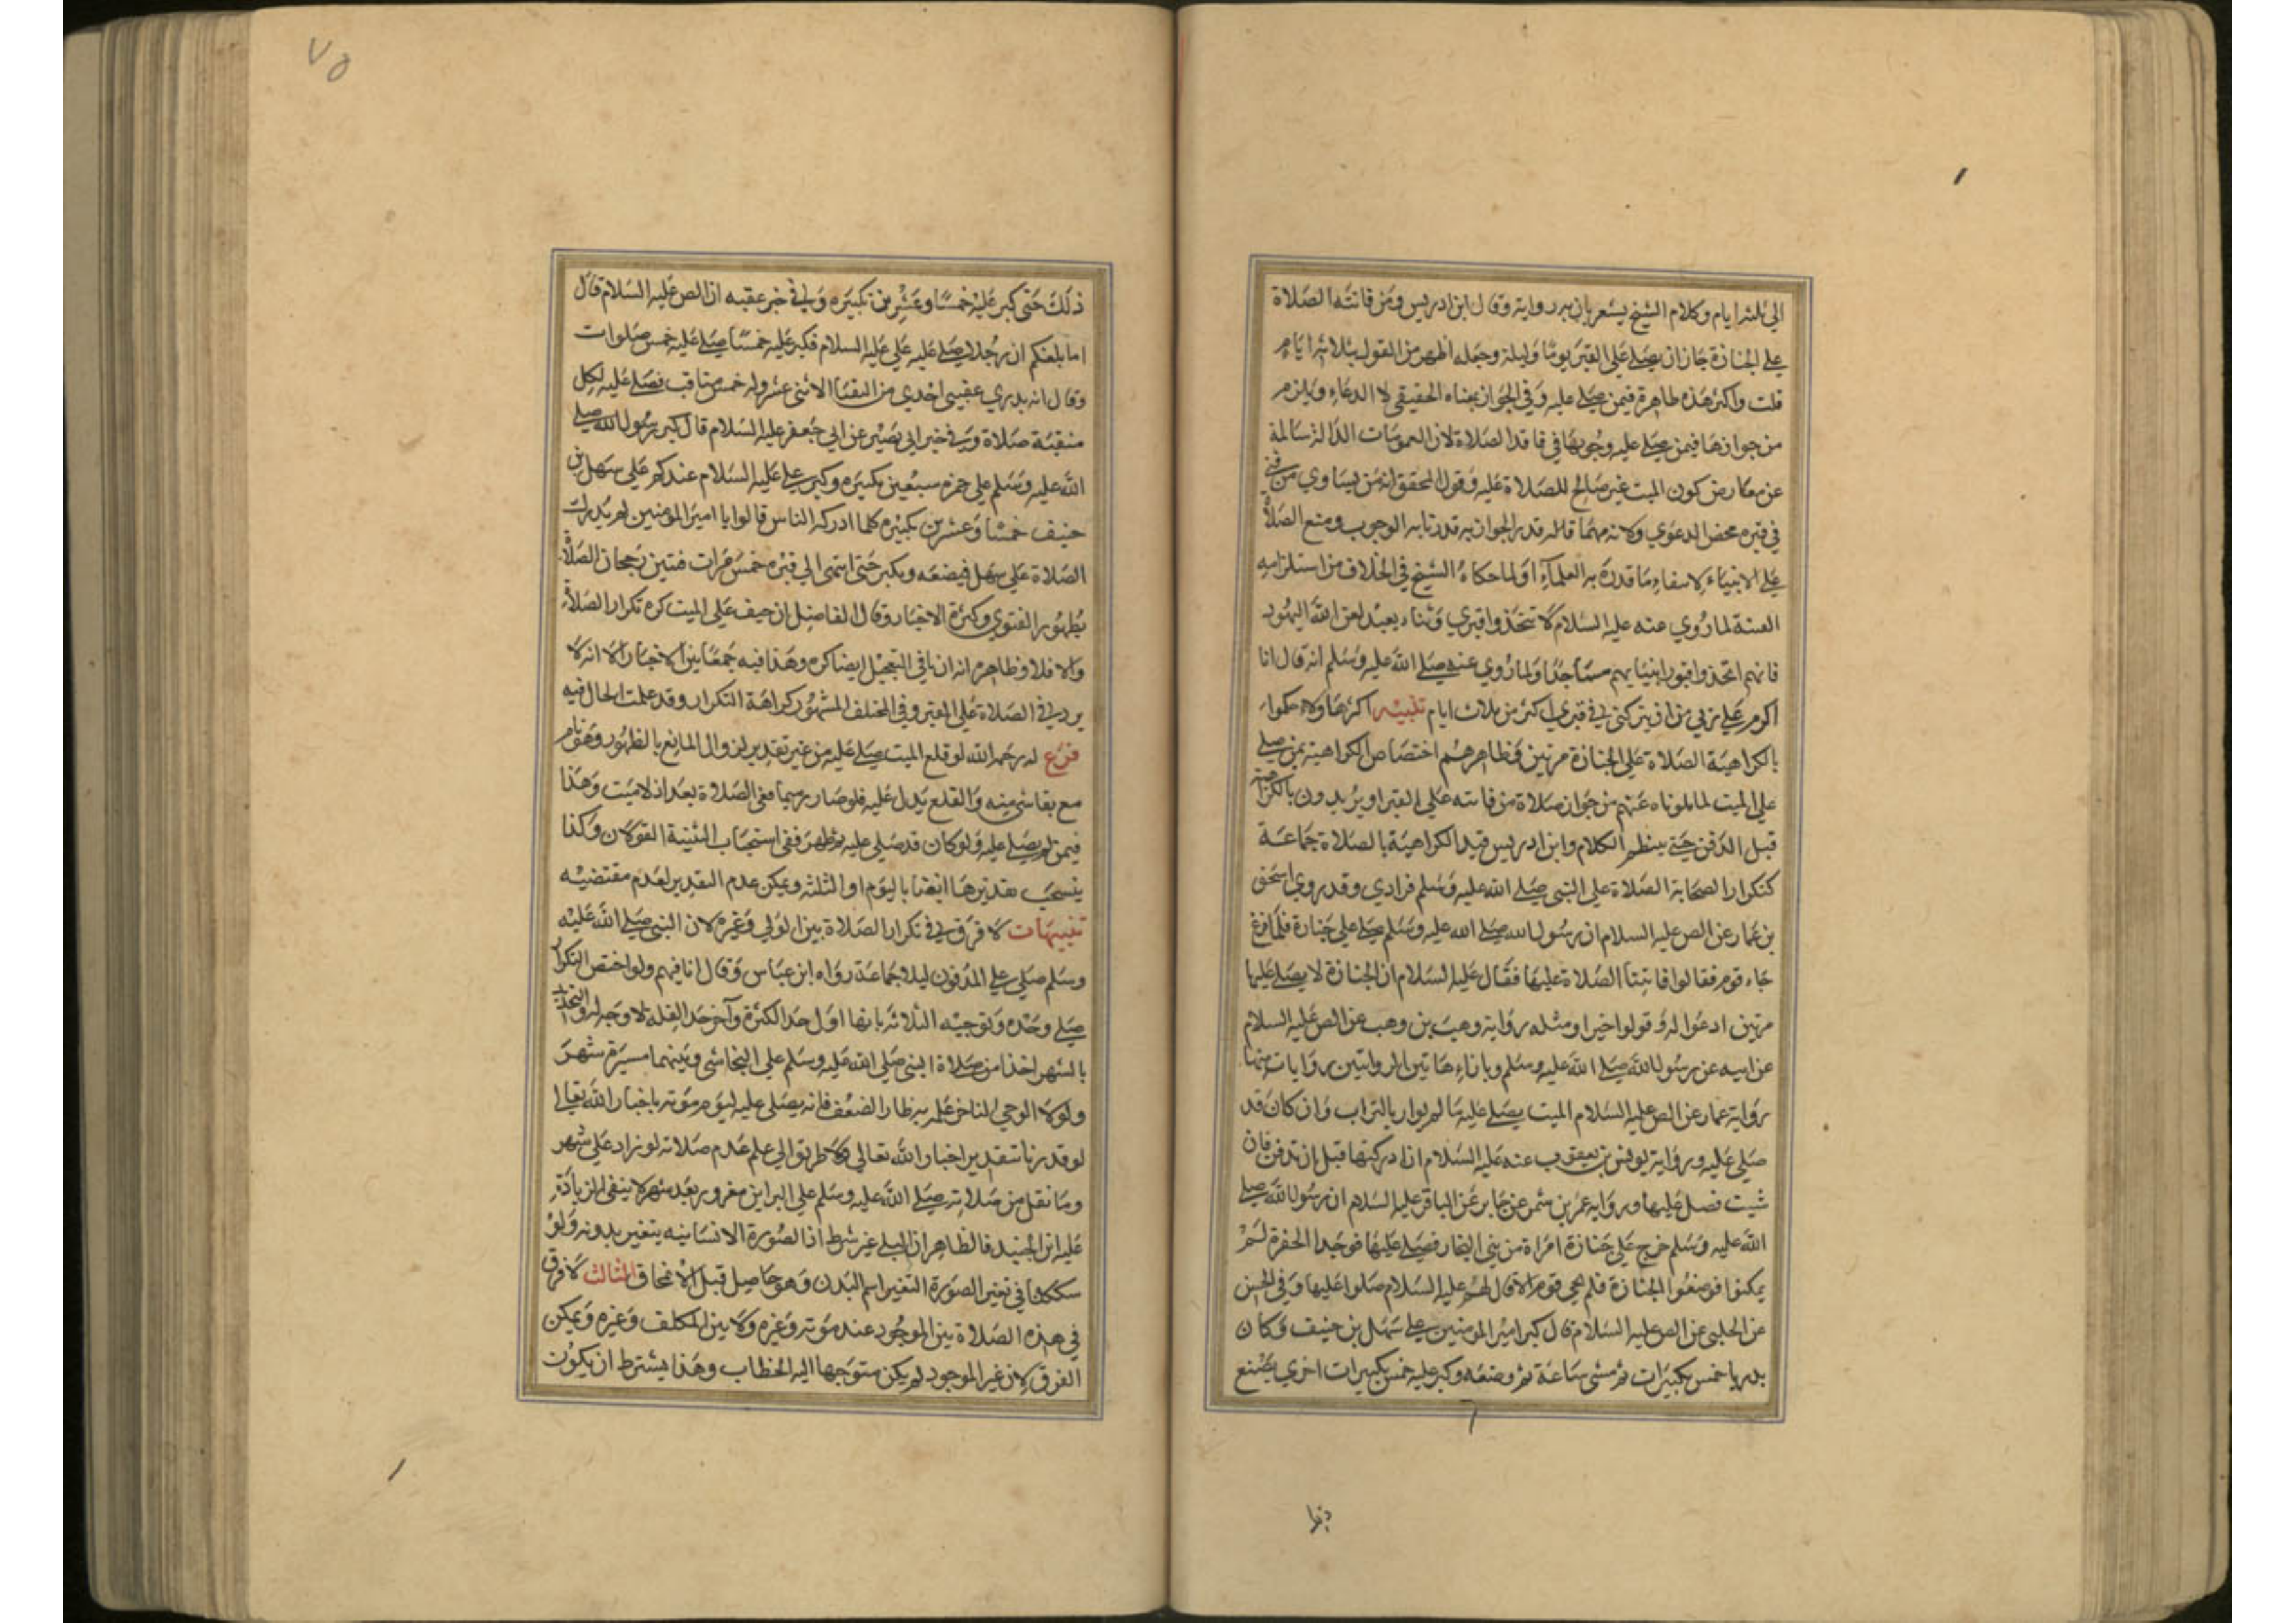 الي ثلثه ايام وكلام الشيخ يشعر بان به رواية وقال ابن ادريس ومن فاتته الصلاة
على الجنازة جاز ان يصلي علي القبر يوما وليلة وجعله اظهر من القول بثلاثه ايام
قلت واكثر هذه ظاهرة فيمن صلي عليه وفي الجواز بمعناه الحقيقي لا الدعاء ويلزم
من جوازها فيمن صلي عليه وجوبها في فاقد الصلاة لان العمومات الدالة سالمة
عن معارض كون الميت غير صالح للصلاة عليه وقول المحقق انه من يساوي من فني
في قبره محض الدعوي ولانه مهما قاله قدر الجواز به قدرنا به الوجوب ومنع الصلاة
على الانبياء لاسفاء ما قدره به العلماء او لما حكاه الشيخ في الخلاف من استلزامه
الفتنة لما روي عنه عليه السلام لا تتخذوا قبري وثنا يعبد لعن الله اليهود
فانهم اتخذوا قبور انبيايهم مساجد ولما روي عنه صلى الله عليه وسلم انه قال انا
اكرم على ربي من ان يتركني في قبري اكثر من ثلاث ايام تنبيه اكثر هاولاء حكموا
بالكراهية الصلاة علي الجنازة مرتين وظاهرهم اختصاص الكراهية بمن صلى
علي الميت لما تلوناه عنهم من جواز صلاة من فاتته علي القبر او يريدون بالكراهية
قبل الدفن حتى ينظم الكلام وابن ادريس قيد الكراهية بالصلاة جماعة
كتكرار الصحابة الصلاة علي النبي صلى الله عليه وسلم فرادي وقد روي اسحق
بن عمار عن الص عليه السلام ان رسول الله صلى الله عليه وسلم صلى علي جنازة فلما فرغ
جاء قوم فقالوا فاتتنا الصلاة عليها فقال عليه السلام ان الجنازة لا يصلى عليها
مرتين ادعوا له وقولوا خيرا ومثله رواية وهب بن وهب عن الص عليه السلام
عن ابيه عن رسول الله صلى الله عليه وسلم وبازاء هاتين الروايتين روايات منها
رواية عمار عن الص عليه السلام الميت يصلى عليه ما لم يوار بالتراب وان كان قد
صلي عليه ورواية يونس بن يعقوب عنه عليه السلام ان ادركتها قبل ان تدفن فان
شيت فصل عليها ورواية عمر بن شمر عن جابر عن الباقر عليه السلام ان رسول الله صلى
الله عليه وسلم خرج علي جنازة امراة من بني النجار فصلى عليها فوجدا الحفرة لم
يمكنوا فوضعوا الجنازة فلم يجي قوم الا قال لهم عليه السلام صلوا عليها وفي الحسن
عن الحلبي عن الص عليه السلام قال كبر امير المومنين على سهل بن حنيف وكان
بدريا خمس تكبيرات ثم مشي ساعة ثم وضعه وكبر عليه خمس تكبيرات اخري يصنع
٧٥
ذلك حتى كبر عليه خمسا وعشرين تكبيره وفي خبر عقبه ان الص عليه السلام قال
اما بلغكم ان رجلا صلى عليه علي عليه السلام فكبر عليه خمسا صلى عليه خمس صلوات
وقال انه بدري عقبي احدي من النقبا الاثني عشر وله خمس مناقب فصلى عليه لكل
منقبة صلاة وفي خبر ابي بصير عن ابي جعفر عليه السلام قال كبر رسول الله صلى
الله عليه وسلم علي حمزه سبعين تكبيره وكبر على عليه السلام عندكم علي سهل بن
حنيف خمسا وعشرين تكبيره كلما ادركه الناس قالوا يا امير المومنين لم ندرك
الصلاة علي سهل فيضعه ويكبر حتى انتهى الي قبره خمس مرات فتبين رجحان الصلاة
بظهور الفتوي وكثرة الاخبار وقال الفاضل ان خيف علي الميت كره تكرار الصلاة
والا فلا وظاهره انه ان نافي التعجيل ايضا كره وهذا فيه جمعا بين الاخبار الا انه لا
يرد في الصلاة علي القبر وفي المختلف المشهور كراهة التكرار وقد علمت الحال فيه
فرع له رحمه الله لو قلع الميت صلى عليه من غير تقدير لزوال المانع بالظهور وهو تام
مع بقا شي منه والقلع يدل عليه فلو صار رميما نفي الصلاة بعد اذ لا ميت وهذا
فيمن لم يصل عليه ولو كان قد صلي عليه ثم ظهر ففي استحباب التثنية القولان وكذا
ينسحب تقديرها ايضا باليوم او الثلثه ويمكن عدم التقدير لعدم مقتضيه
تنبيهات لا فرق في تكرار الصلاة بين الولي وغيره لان النبي صلى الله عليه
وسلم صلي علي المدفون ليلا جماعة رواه ابن عباس وقال انا فيهم ولو اختص التكرار
صلى وحده وتوجيه الثلاثه بانها اول حد الكثرة وآخر حد القلة لا وجه له والتحديد
بالشهر اخذا من صلاة النبي صلى الله عليه وسلم علي النجاشي وبينهما مسيرة شهر
ولولا الوحي لتاخر علمه به ظاهر الضعف فانه يصلى عليه ليوم موته باخبار الله تعالى
لو قدرنا تقدير اخبار الله تعالى ولا طريق الي علم عدم صلاته لو زاد علي شهر
وما نقل من صلاته صلى الله عليه وسلم علي البرا بن معرور بعد شهر لا ينفى الزيادة
عليه ابن الجنيد فالظاهر ان البلي غير شرط اذ الصورة الانسانيه يتغير بدونه ولو
في تغير الصورة التغير اسم البدن وهو حاصل قبل الانمحاق الثالث لا فرق
في هذه الصلاة بين الموجود عند موته وغيره ولا بين المكلف وغيره ويمكن
الفرق لان غير الموجود لم يكن متوجها اليه الخطاب وهذا يشترط ان يكون